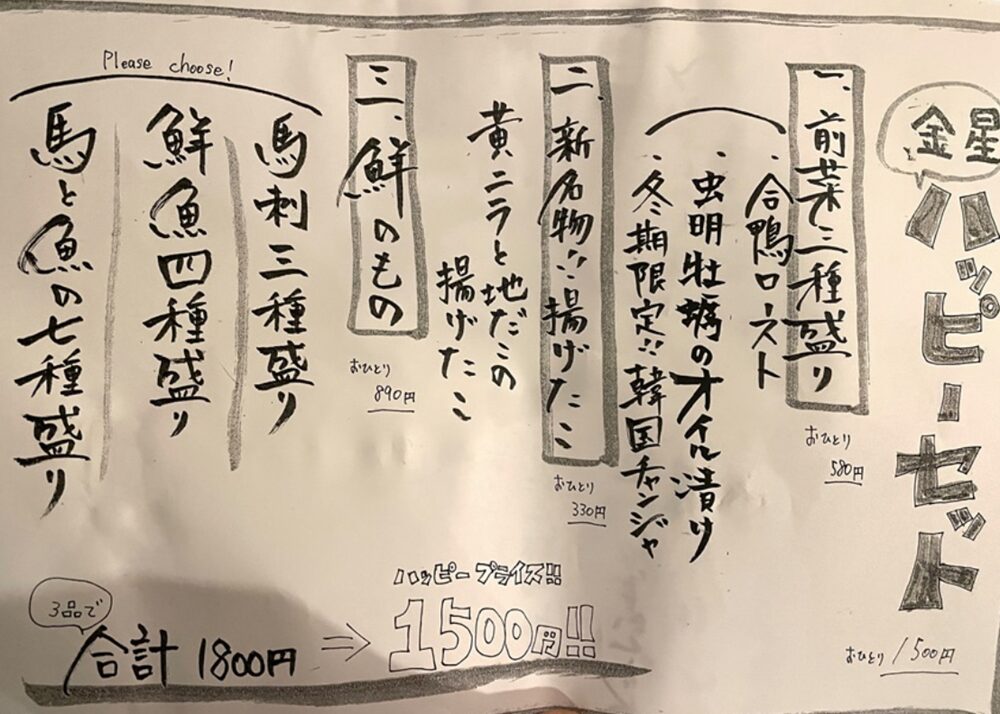 金星
ハッピーセット
おひとり 1500円
一、前菜三種盛り
おひとり
580円
・合鴨ロースト
・虫明牡蠣のオイル漬け
・冬期限定!!韓国チャンジャ
二、新名物!!揚げたこ
おひとり
330円
黄ニラと地だこの
揚げたこ
三、鮮のもの
おひとり
890円
Please choose!
馬刺三種盛り
鮮魚四種盛り
馬と魚の七種盛り
3品で
合計 1800円 ⇒
ハッピープライス!!
1500円!!